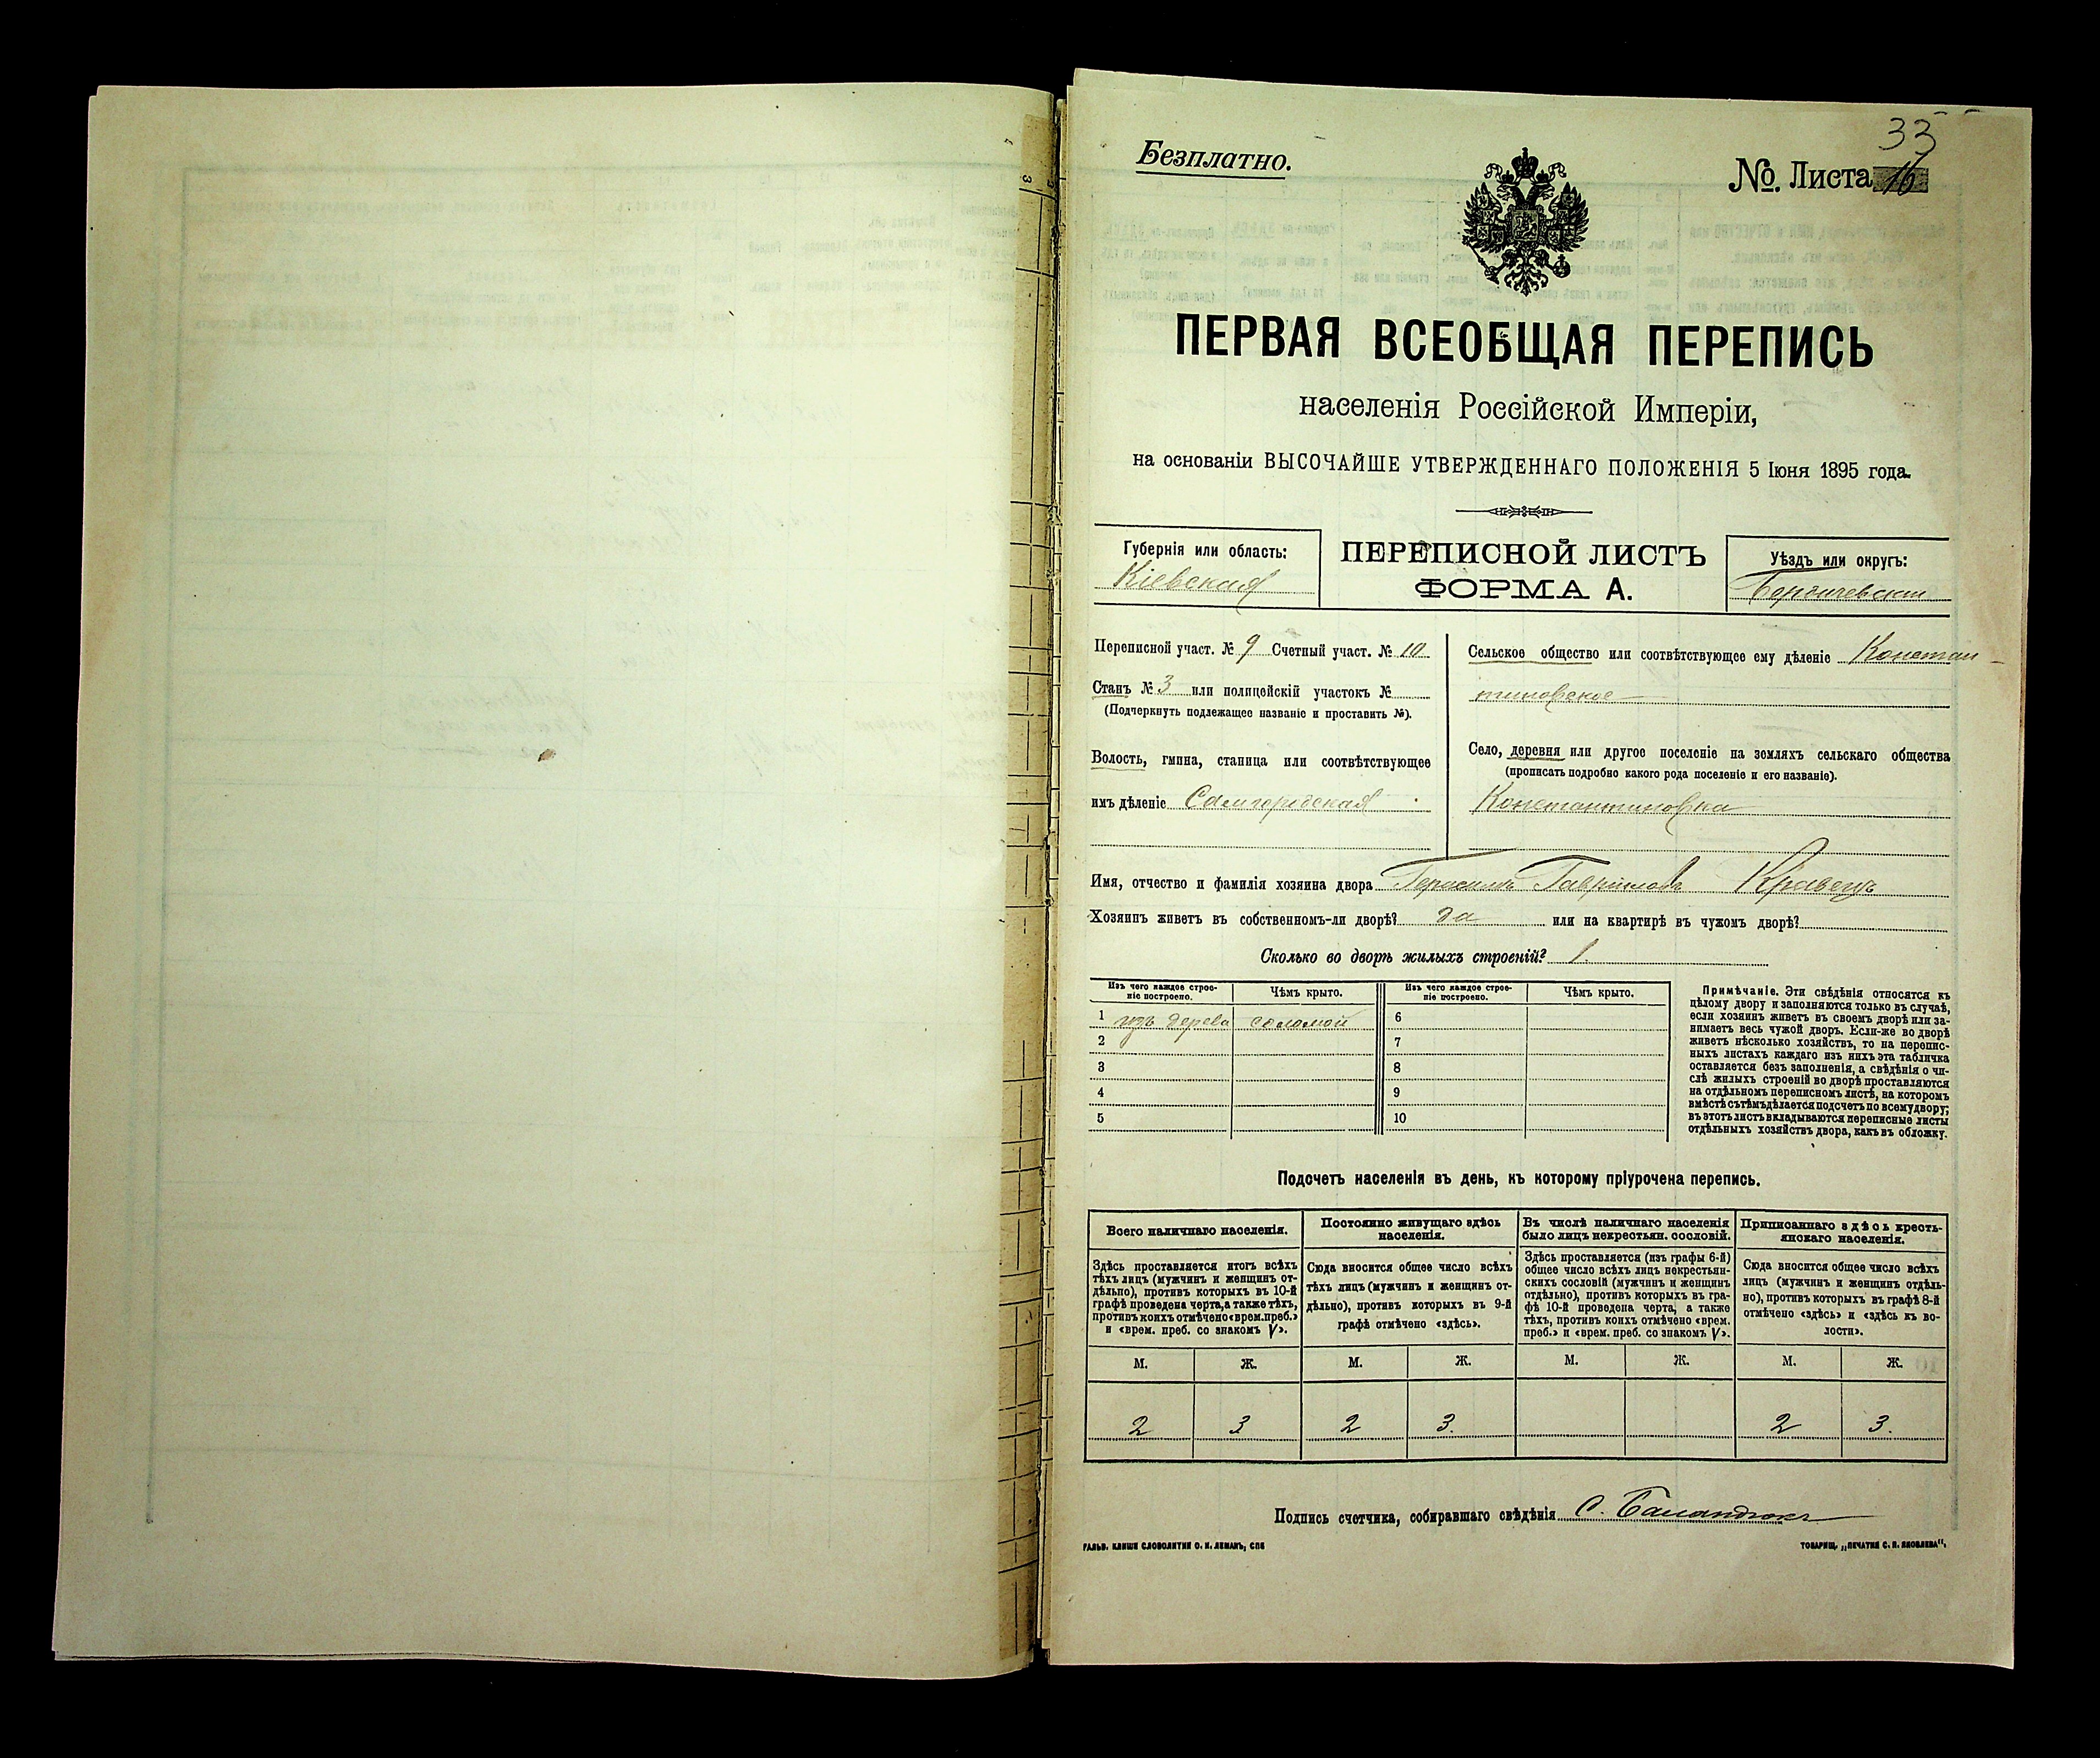 33
Безплатно.
№. Листа 16
ПЕРВАЯ ВСЕОБЩАЯ ПЕРЕПИСЬ
населенія Россійской Имперіи,
на основаніи ВЫСОЧАЙШЕ УТВЕРЖДЕННАГО ПОЛОЖЕНІЯ 5 Іюня 1895 года.
Губернія или область:
Кіевская
ПЕРЕПИСНОЙ ЛИСТЪ
ФОРМА А.
Уѣздъ или округъ:
Бердичевскій
Переписной участ. № 9 Счетный участ. № 10
Станъ № 3 или полицейскій участокъ №
(Подчеркнуть подлежащее названіе и проставить №).
Волость, гмина, станица или соотвѣтствующее
имъ дѣленіе Самгородская
Сельское общество или соотвѣтствующее ему дѣленіе Констан-
тиновское
Село, деревня или другое поселеніе на земляхъ сельскаго общества
(прописать подробно какого рода поселеніе и его названіе).
Константиновка
Имя, отчество и фамилія хозяина двора Герасимъ Гавриловъ Кравецъ
Хозяинъ живетъ въ собственномъ-ли дворѣ? да или на квартирѣ въ чужомъ дворѣ?
Сколько во дворѣ жилыхъ строеній? 1.
Изъ чего каждое строе-
ніе построено.
Чѣмъ крыто.
Изъ чего каждое строе-
ніе построено.
Чѣмъ крыто.
1 изъ дерева соломой 6
2 7
3 8
4 9
5 10
Примѣчаніе. Эти свѣдѣнія относятся къ
цѣлому двору и заполняются только въ случаѣ,
если хозяинъ живетъ въ своемъ дворѣ или за-
нимаетъ весь чужой дворъ. Если-же во дворѣ
живетъ нѣсколько хозяйствъ, то на перепис-
ныхъ листахъ каждаго изъ нихъ эта табличка
оставляется безъ заполненія, а свѣдѣнія о чи-
слѣ жилыхъ строеній во дворѣ проставляются
на отдѣльномъ переписномъ листѣ, на которомъ
вмѣстѣ съ тѣмъ дѣлается подсчетъ по всему двору;
въ этотъ листъ вкладываются переписные листы
отдѣльныхъ хозяйствъ двора, какъ въ обложку.
Подсчетъ населенія въ день, къ которому пріурочена перепись.
Всего наличнаго населенія.
Здѣсь проставляется итогъ всѣхъ
тѣхъ лицъ (мужчинъ и женщинъ от-
дѣльно), противъ которыхъ въ 10-й
графѣ проведена черта, а также тѣхъ,
противъ коихъ отмѣчено «врем. преб.»
и «врем. преб. со знакомъ V».
Постоянно живущаго здѣсь
населенія.
Сюда вносится общее число всѣхъ
тѣхъ лицъ (мужчинъ и женщинъ от-
дѣльно), противъ которыхъ въ 9-й
графѣ отмѣчено «здѣсь».
Въ числѣ наличнаго населенія
было лицъ некрестьян. сословій.
Здѣсь проставляется (изъ графы 6-й)
общее число всѣхъ лицъ некрестьян-
скихъ сословій (мужчинъ и женщинъ
отдѣльно), противъ которыхъ въ гра-
фѣ 10-й проведена черта, а также
тѣхъ, противъ коихъ отмѣчено «врем.
преб.» и «врем. преб. со знакомъ V».
Приписаннаго здѣсь кресть-
янскаго населенія.
Сюда вносится общее число всѣхъ
лицъ (мужчинъ и женщинъ отдѣль-
но), противъ которыхъ въ графѣ 8-й
отмѣчено «здѣсь» и «здѣсь къ во-
лости».
М. Ж. М. Ж. М. Ж. М. Ж.
2 3 2 3. 2 3.
Подпись счетчика, собиравшаго свѣдѣнія С.
ГАЛЬВ. КЛИШЕ СЛОВОЛИТНИ О. И. ЛЕМАНЪ, СПБ
ТОВАРИЩ. „ПЕЧАТНЯ С. П. ЯКОВЛЕВА“.